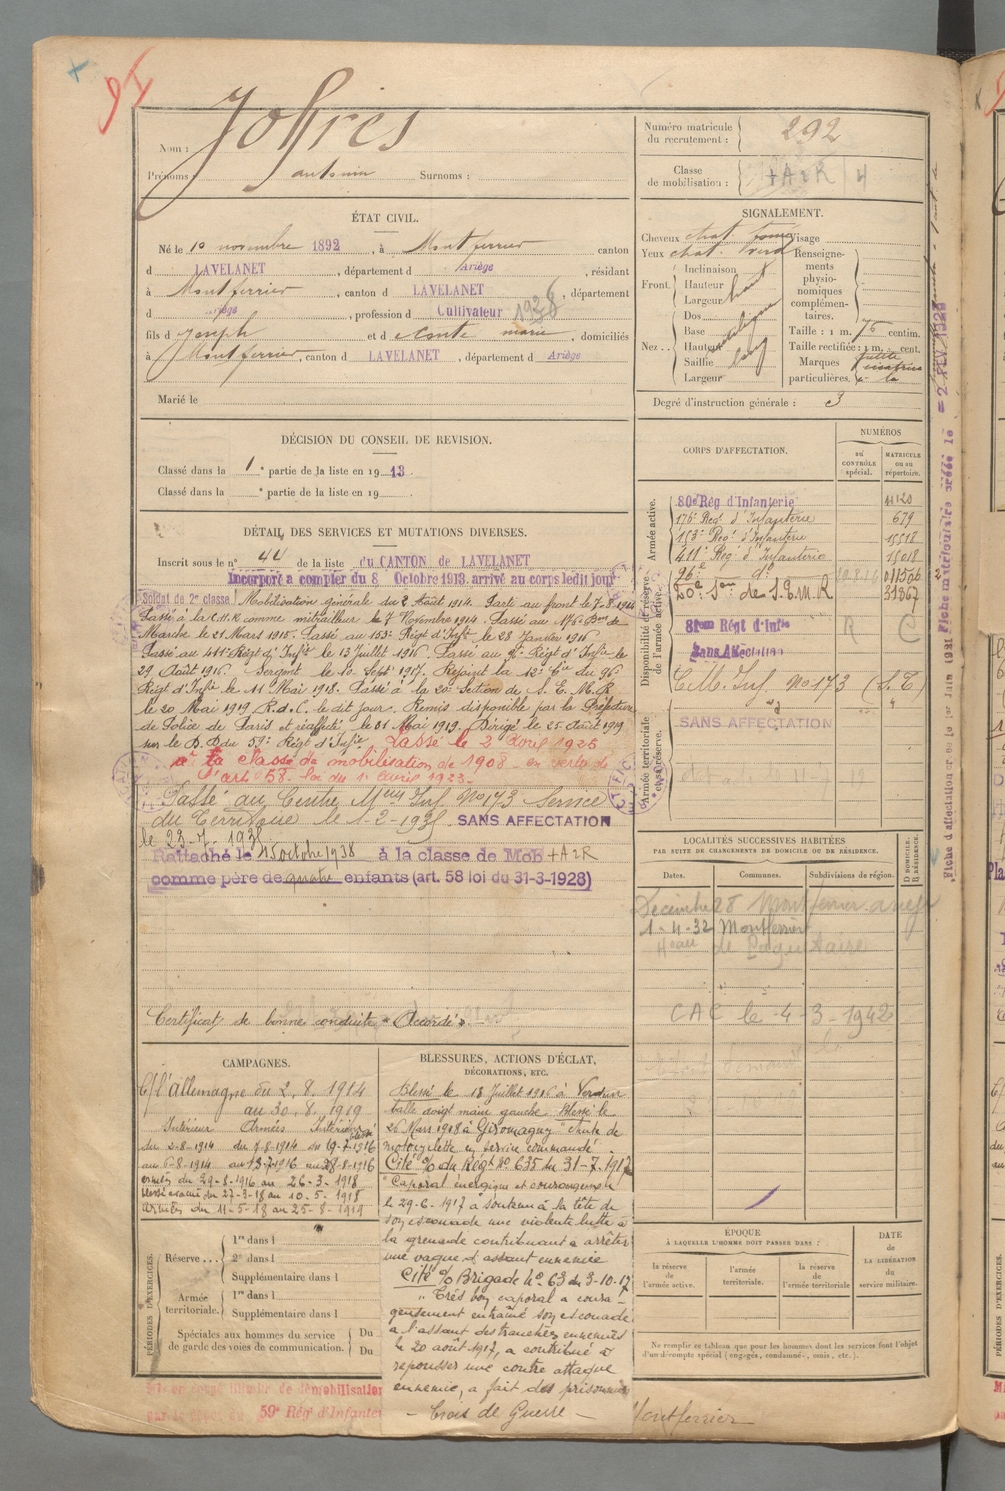 Nom : Joffres
Prénoms : antonin Surnoms :
Numéro matricule du recrutement : 292
Classe de mobilisation : +A2R
ÉTAT CIVIL.
Né le 10 novembre 1892, à Montferrier canton
d LAVELANET, département d Ariège, résidant
à Montferrier, canton d LAVELANET, département
d Ariège, profession d Cultivateur 1938
fils d Joseph et d marie, domiciliés
à Montferrier, canton d LAVELANET, département d Ariège
Marié le
SIGNALEMENT.
Cheveux chat. Visage
Yeux chat.
Front. Inclinaison
Hauteur haut
Largeur
Nez Dos
Base
Hauteur
Saillie long
Largeur
Renseignements physionomiques complémentaires.
Taille : 1 m. 75 centim.
Taille rectifiée : 1 m. cent.
Marques particulières. petite cicatrice à la
Degré d'instruction générale : 3
DÉCISION DU CONSEIL DE REVISION.
Classé dans la 1e partie de la liste en 1913.
Classé dans la e partie de la liste en 19
DÉTAIL DES SERVICES ET MUTATIONS DIVERSES.
Inscrit sous le n° 44 de la liste du CANTON DE LAVELANET
Incorporé à compter du 8 Octobre 1913. arrivé au corps ledit jour
Soldat de 2e classe Mobilisation générale du 2 Août 1914. Parti au front le 7-8-1914
Passé à la C.M.R comme mitrailleur le 7 Novembre 1914. Passé au 176e Bon de
Marche le 21 Mars 1915. Passé au 153e Régt d'Infie le 28 Janvier 1916
Passé au 411e Régt d'Infie le 13 Juillet 1916. Passé au 96e Régt d'Infie le
29 Août 1916. Sergent le 10 Sept 1917. Rejoint la 12e Cie du 96e
Régt d'Infie le 11 Mai 1918. Passé à la 20e Section de S. E. M. R
le 20 Mai 1919 R.d.C. le dit jour. Remis disponible par la Préfecture
de Police de Paris et réaffecté le 21 Mai 1919. Dirigé le 25 Août 1919
sur le D.D du 59e Régt d'Infie. Passé le 2 avril 1925
à la classe de mobilisation de 1908 en vertu de
l'art 58 loi du 1er avril 1923
Passé au Centre Mum Inf. No 173 Service
du Territoire le 1-2-1938 SANS AFFECTATION
le 23-7-1938
Rattaché le 15 octobre 1938 à la classe de Mob +A2R
comme père de quatre enfants (art. 58 loi du 31-3-1928)
Certificat de bonne conduite "Accordé".
CORPS D'AFFECTATION.
NUMÉROS
AU CONTRÔLE spécial.
MATRICULE ou au répertoire.
Armée active.
80e Rég d'Infanterie 4120
176e Régt d'Infanterie 679
153e Régt d'Infanterie 15518
411e Régt d'Infanterie 15018
Disponibilité et réserve de l'armée active.
96e do 29.8.16 011566
20e Son de S.E.M.R 31367
81em Régt d'Infie R C
Sans Affectation
C.M. Inf. No 173 (S.T)
Armée territoriale et sa réserve.
SANS AFFECTATION
LOCALITÉS SUCCESSIVES HABITÉES
PAR SUITE DE CHANGEMENTS DE DOMICILE OU DE RÉSIDENCE.
Dates. Communes. Subdivisions de région. D DOMICILE. R RÉSIDENCE.
Décembre 28 Montferrier
1-4-32 Montferrier
CAC le 4-3-1942
CAMPAGNES.
C/ l'Allemagne du 2. 8. 1914
au 30. 8. 1919
Intérieur Armées Intérieur blessé
du 2-8-1914 du 7-8-1914 du 19-7-1916
au 6-8-1914 au 18-7-1916 au 28-8-1916
armées du 29-8-1916 au 26-3-1918
blessé évacué du 27-3-18 au 10-5-1918
Armées du 11-5-18 au 25-8-1919
BLESSURES, ACTIONS D'ÉCLAT,
DÉCORATIONS, ETC.
Blessé le 18 Juillet 1916 à Verdun
balle doigt main gauche. Blessé le
26 Mars 1918 à Giromagny "chute de
motocyclette en service commandé.
Cité % du Régt No 635 du 31-7-1917
"Caporal énergique et courageux
le 29-6-1917 a soutenu à la tête de
son escouade une violente lutte à
la grenade contribuant à arrêter
une vague d'assaut ennemie
Cité % Brigade No 63 du 3-10-17
"Très bon caporal a coura-
geusement entraîné son escouade
à l'assaut des tranchées ennemies
le 20 août 1917, a contribué à
repousser une contre attaque
ennemie, a fait des prisonniers
- Croix de Guerre -
PÉRIODES D'EXERCICES.
Réserve... 1re dans l
2e dans l
Supplémentaire dans l
Armée territoriale. 1re dans l
Supplémentaire dans l
Spéciales aux hommes du service de garde des voies de communication. Du
Du
ÉPOQUE
À LAQUELLE L'HOMME DOIT PASSER DANS :
la réserve de l'armée active.
l'armée territoriale.
la réserve de l'armée territoriale
DATE de LA LIBÉRATION du service militaire.
Ne remplir ce tableau que pour les hommes dont les services font l'objet
d'un décompte spécial (engagés, condamnés, omis, etc.).
de démobilisation
par le dépôt du 59e Rég d'Infanter
Montferrier